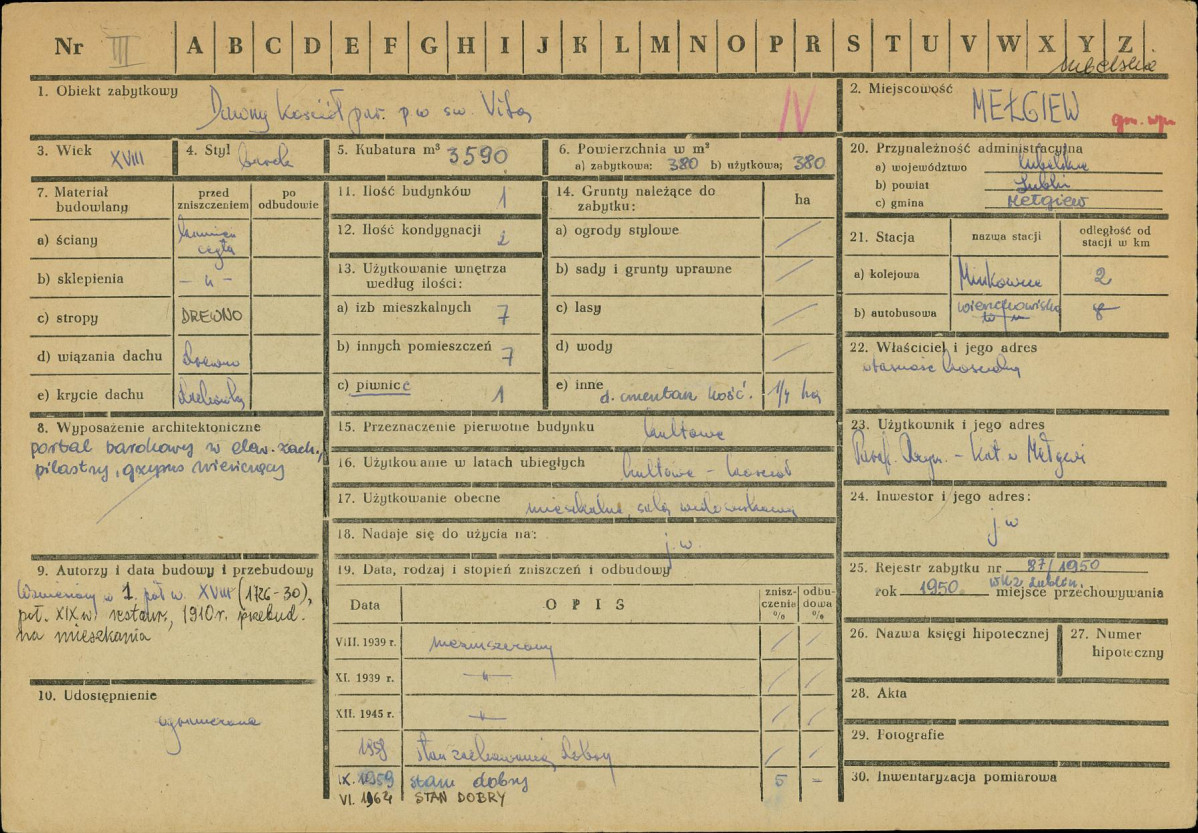 Nr III A B C D E F G H I J K L M N O P R S T U V W X Y Z
lubelskie
1. Obiekt zabytkowy
Dawny Kościół par. p w sw. Vita
IV
2. Miejscowość
MEŁGIEW
3. Wiek XVIII
4. Styl barok
5. Kubatura m³ 3590
6. Powierzchnia w m²
a) zabytkowa: 380 b) użytkowa: 380
20. Przynależność administracyjna
a) województwo lubelskie
b) powiat Lublin
c) gmina Mełgiew
7. Materiał budowlany
przed zniszczeniem
po odbudowie
a) ściany kamień cegła
b) sklepienia - " -
c) stropy DREWNO
d) wiązania dachu drewno
e) krycie dachu
11. Ilość budynków 1
12. Ilość kondygnacji 2
13. Użytkowanie wnętrza
według ilości:
a) izb mieszkalnych 7
b) innych pomieszczeń 7
c) piwnic 1
14. Grunty należące do
zabytku:
ha
a) ogrody stylowe /
b) sady i grunty uprawne /
c) lasy /
d) wody /
e) inne d. cmentarz kość. 1/4 ha
21. Stacja
nazwa stacji
odległość od
stacji w km
a) kolejowa Minkowice 2
b) autobusowa
22. Właściciel i jego adres
własność kościelna
8. Wyposażenie architektoniczne
portal barokowy w elew. zach.,
pilastry, gzyms wieńczący
15. Przeznaczenie pierwotne budynku kultowe
16. Użytkowanie w latach ubiegłych kultowe - kościół
17. Użytkowanie obecne mieszkalne, sala widowiskowa
18. Nadaje się do użycia na: j.w.
23. Użytkownik i jego adres
Paraf. Rzym. - Kat w Mełgwi
24. Inwestor i jego adres:
j w
9. Autorzy i data budowy i przebudowy
Wzniesiony w 1. poł w. XVIII (1726-30),
poł. XIX w. restaur., 1910 r. przebud.
na mieszkania
10. Udostępnienie
ograniczone
19. Data, rodzaj i stopień zniszczeń i odbudowy
Data
OPIS
znisz-
czenie
%
odbu-
dowa
%
VIII. 1939 r. nienaruszony / /
XI. 1939 r. - " - / /
XII. 1945 r. - " - / /
1958 stan zachowania dobry / /
IX. 1959 stan dobry 5 -
VI. 1964 STAN DOBRY
25. Rejestr zabytku nr 87/1950
rok 1950 WKZ Lublin. miejsce przechowywania
26. Nazwa księgi hipotecznej
27. Numer
hipoteczny
28. Akta
29. Fotografie
30. Inwentaryzacja pomiarowa